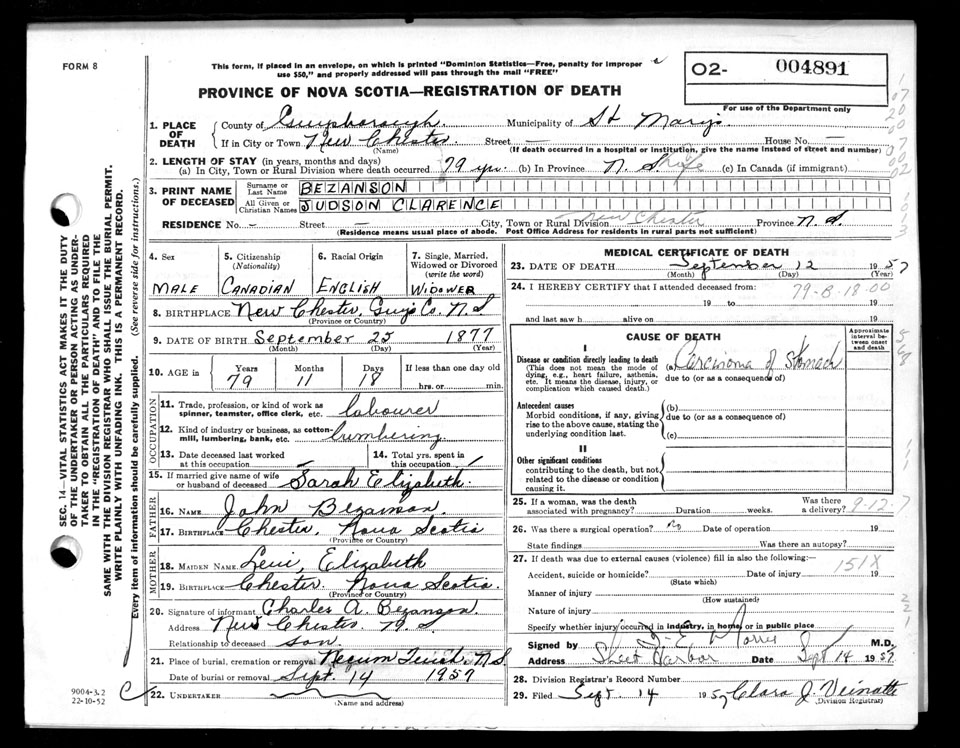 FORM 8
This form, if placed in an envelope, on which is printed "Dominion Statistics—Free, penalty for improper
use $50," and properly addressed will pass through the mail "FREE"
PROVINCE OF NOVA SCOTIA—REGISTRATION OF DEATH
02- 004891
For use of the Department only
1. PLACE OF DEATH { County of Guysborough Municipality of St Mary's
If in City or Town New Chester Street — House No. —
(Name) (If death occurred in a hospital or institution, give the name instead of street and number)
2. LENGTH OF STAY (in years, months and days)
(a) In City, Town or Rural Division where death occurred 79 yrs. (b) In Province N. S. life (c) In Canada (if immigrant)
3. PRINT NAME OF DECEASED Surname or Last Name BEZANSON
All Given or Christian Names JUDSON CLARENCE
RESIDENCE No. – Street – City, Town or Rural Division New Chester Province N. S
(Residence means usual place of abode. Post Office Address for residents in rural parts not sufficient)
SEC. 14—VITAL STATISTICS ACT MAKES IT THE DUTY
OF THE UNDERTAKER OR PERSON ACTING AS UNDER-
TAKER TO OBTAIN ALL THE PARTICULARS REQUIRED
IN THE "REGISTRATION OF DEATH" AND TO FILE THE
SAME WITH THE DIVISION REGISTRAR WHO SHALL ISSUE THE BURIAL PERMIT.
WRITE PLAINLY WITH UNFADING INK. THIS IS A PERMANENT RECORD.
Every item of information should be carefully supplied. (See reverse side for instructions.)
4. Sex MALE
5. Citizenship (Nationality) CANADIAN
6. Racial Origin ENGLISH
7. Single, Married, Widowed or Divorced (write the word) WIDOWER
8. BIRTHPLACE New Chester, Guys Co. N S
(Province or Country)
9. DATE OF BIRTH September 25 1877
(Month) (Day) (Year)
10. AGE in Years 79 Months 11 Days 18 If less than one day old hrs. or min.
OCCUPATION
11. Trade, profession, or kind of work as spinner, teamster, office clerk, etc. labourer
12. Kind of industry or business, as cotton-mill, lumbering, bank, etc. lumbering
13. Date deceased last worked at this occupation
14. Total yrs. spent in this occupation
15. If married give name of wife or husband of deceased Sarah Elizabeth
FATHER
16. NAME John Bezanson
17. BIRTHPLACE Chester, Nova Scotia
(Province or Country)
MOTHER
18. MAIDEN NAME Levi, Elizabeth
19. BIRTHPLACE Chester. Nova Scotia
(Province or Country)
20. Signature of informant Charles A. Bezanson
Address New Chester N. S
Relationship to deceased son
21. Place of burial, cremation or removal Necum Teuch, N S
Date of burial or removal Sept. 14 1957
22. UNDERTAKER
(Name and address)
9004-3.2
22-10-52
MEDICAL CERTIFICATE OF DEATH
23. DATE OF DEATH September 12 1957
(Month) (Day) (Year)
24. I HEREBY CERTIFY that I attended deceased from:
79-8-18.00
19 to 19
and last saw h alive on 19
CAUSE OF DEATH
Approximate interval between onset and death
I
Disease or condition directly leading to death
(This does not mean the mode of dying, e.g., heart failure, asthenia, etc. It means the disease, injury, or complication which caused death.)
(a) Carcinoma of Stomach
due to (or as a consequence of)
Antecedent causes
Morbid conditions, if any, giving rise to the above cause, stating the underlying condition last.
(b)
due to (or as a consequence of)
(c)
II
Other significant conditions
contributing to the death, but not related to the disease or condition causing it.
25. If a woman, was the death associated with pregnancy? Duration weeks. Was there a delivery? 9-12 7
26. Was there a surgical operation? No Date of operation 19
State findings Was there an autopsy?
27. If death was due to external causes (violence) fill in also the following:
Accident, suicide or homicide? Date of injury 151X 19
(State which)
Manner of injury
(How sustained)
Nature of injury
Specify whether injury occurred in industry, in home, or in public place
Signed by Morris M.D.
Address Sheet Harbor Date Sept 14 1957
28. Division Registrar's Record Number
29. Filed Sept. 14 1957 Clara J. Veinotte
(Division Registrar)